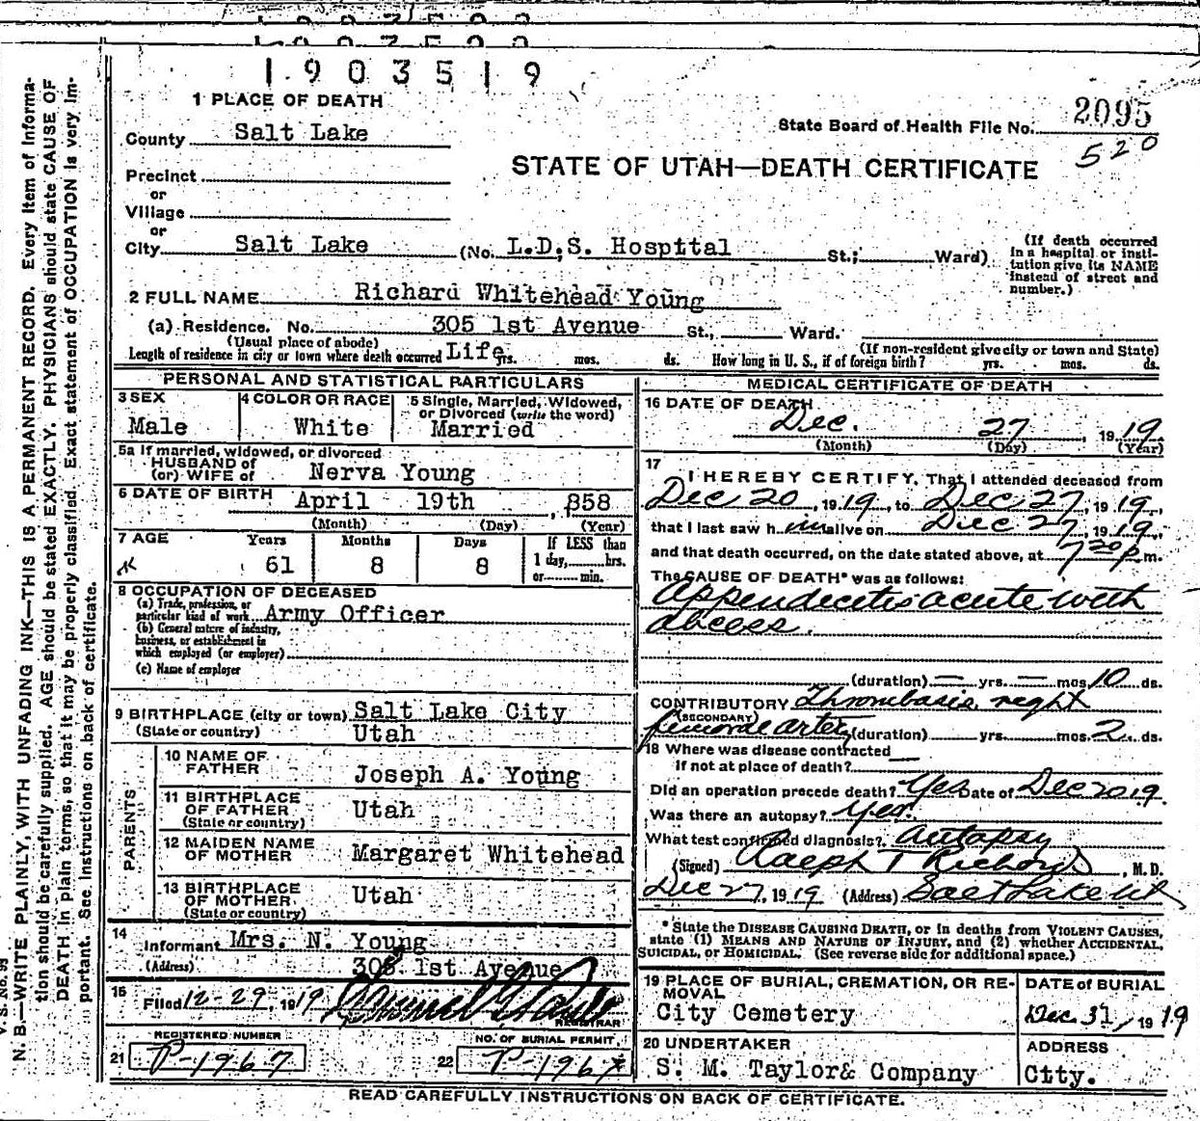 1903519
1 PLACE OF DEATH
County Salt Lake
State Board of Health File No. 2095
520
STATE OF UTAH—DEATH CERTIFICATE
Precinct
or
Village
or
City Salt Lake (No. L.D.S. Hospital St.; Ward)
(If death occurred in a hospital or institution give its NAME instead of street and number.)
2 FULL NAME Richard Whitehead Young
(a) Residence. No. 305 1st Avenue St., Ward.
(Usual place of abode) (If non-resident give city or town and State)
Length of residence in city or town where death occurred Life yrs. mos. ds. How long in U. S., if of foreign birth? yrs. mos. ds.
PERSONAL AND STATISTICAL PARTICULARS
3 SEX
Male
4 COLOR OR RACE
White
5 Single, Married, Widowed, or Divorced (write the word)
Married
5a If married, widowed, or divorced
HUSBAND of
(or) WIFE of Nerva Young
6 DATE OF BIRTH April 19th, 858
(Month) (Day) (Year)
7 AGE Years Months Days If LESS than
61 8 8 1 day, hrs.
or min.
8 OCCUPATION OF DECEASED
(a) Trade, profession, or
particular kind of work Army Officer
(b) General nature of industry,
business, or establishment in
which employed (or employer)
(c) Name of employer
9 BIRTHPLACE (city or town) Salt Lake City
(State or country) Utah
PARENTS
10 NAME OF FATHER Joseph A. Young
11 BIRTHPLACE OF FATHER (State or country) Utah
12 MAIDEN NAME OF MOTHER Margaret Whitehead
13 BIRTHPLACE OF MOTHER (State or country) Utah
14
Informant Mrs. N. Young
(Address) 305 1st Avenue
15
Filed 12-29, 1919
REGISTRAR
REGISTERED NUMBER
21 P-1967
NO. OF BURIAL PERMIT
22 P-1967
MEDICAL CERTIFICATE OF DEATH
16 DATE OF DEATH
Dec. 27, 1919
(Month) (Day) (Year)
17
I HEREBY CERTIFY, That I attended deceased from
Dec 20, 1919, to Dec 27, 1919,
that I last saw h im alive on Dec 27, 1919,
and that death occurred, on the date stated above, at 7 20 p m.
The CAUSE OF DEATH* was as follows:
Appendicitis acute with
abcess.
(duration) — yrs. — mos. 10 ds.
CONTRIBUTORY Thrombosis right
(SECONDARY)
femoral artery (duration) yrs. mos. 2 ds.
18 Where was disease contracted
If not at place of death? —
Did an operation precede death? Yes Date of Dec 20 19.
Was there an autopsy? Yes.
What test confirmed diagnosis? Autopsy
(Signed) Ralph T Richards, M.D.
Dec 27, 1919 (Address) Salt Lake Ut
* State the DISEASE CAUSING DEATH, or in deaths from VIOLENT CAUSES,
state (1) MEANS AND NATURE OF INJURY, and (2) whether ACCIDENTAL,
SUICIDAL, or HOMICIDAL. (See reverse side for additional space.)
19 PLACE OF BURIAL, CREMATION, OR REMOVAL
City Cemetery
DATE OF BURIAL
Dec. 31, 1919
20 UNDERTAKER
S. M. Taylor & Company
ADDRESS
City.
READ CAREFULLY INSTRUCTIONS ON BACK OF CERTIFICATE.
V. S. No.
N. B.—WRITE PLAINLY, WITH UNFADING INK—THIS IS A PERMANENT RECORD. Every item of information
should be carefully supplied. AGE should be stated EXACTLY. PHYSICIANS should state CAUSE OF
DEATH in plain terms, so that it may be properly classified. Exact statement of OCCUPATION is very important.
See instructions on back of certificate.